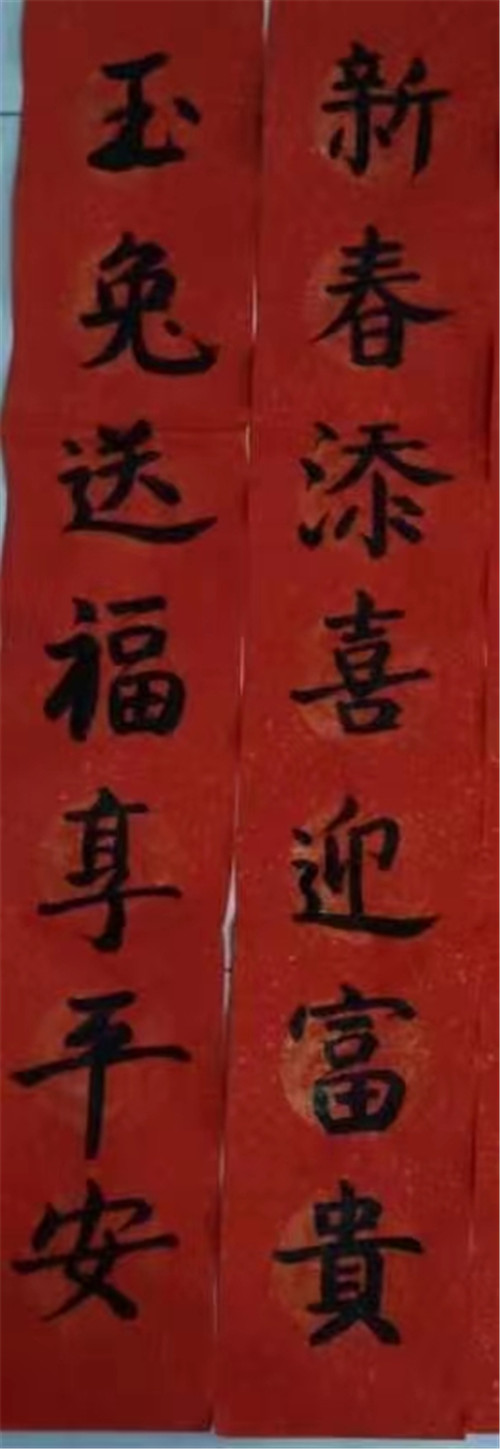 新春添喜迎富貴
玉兔送福享平安